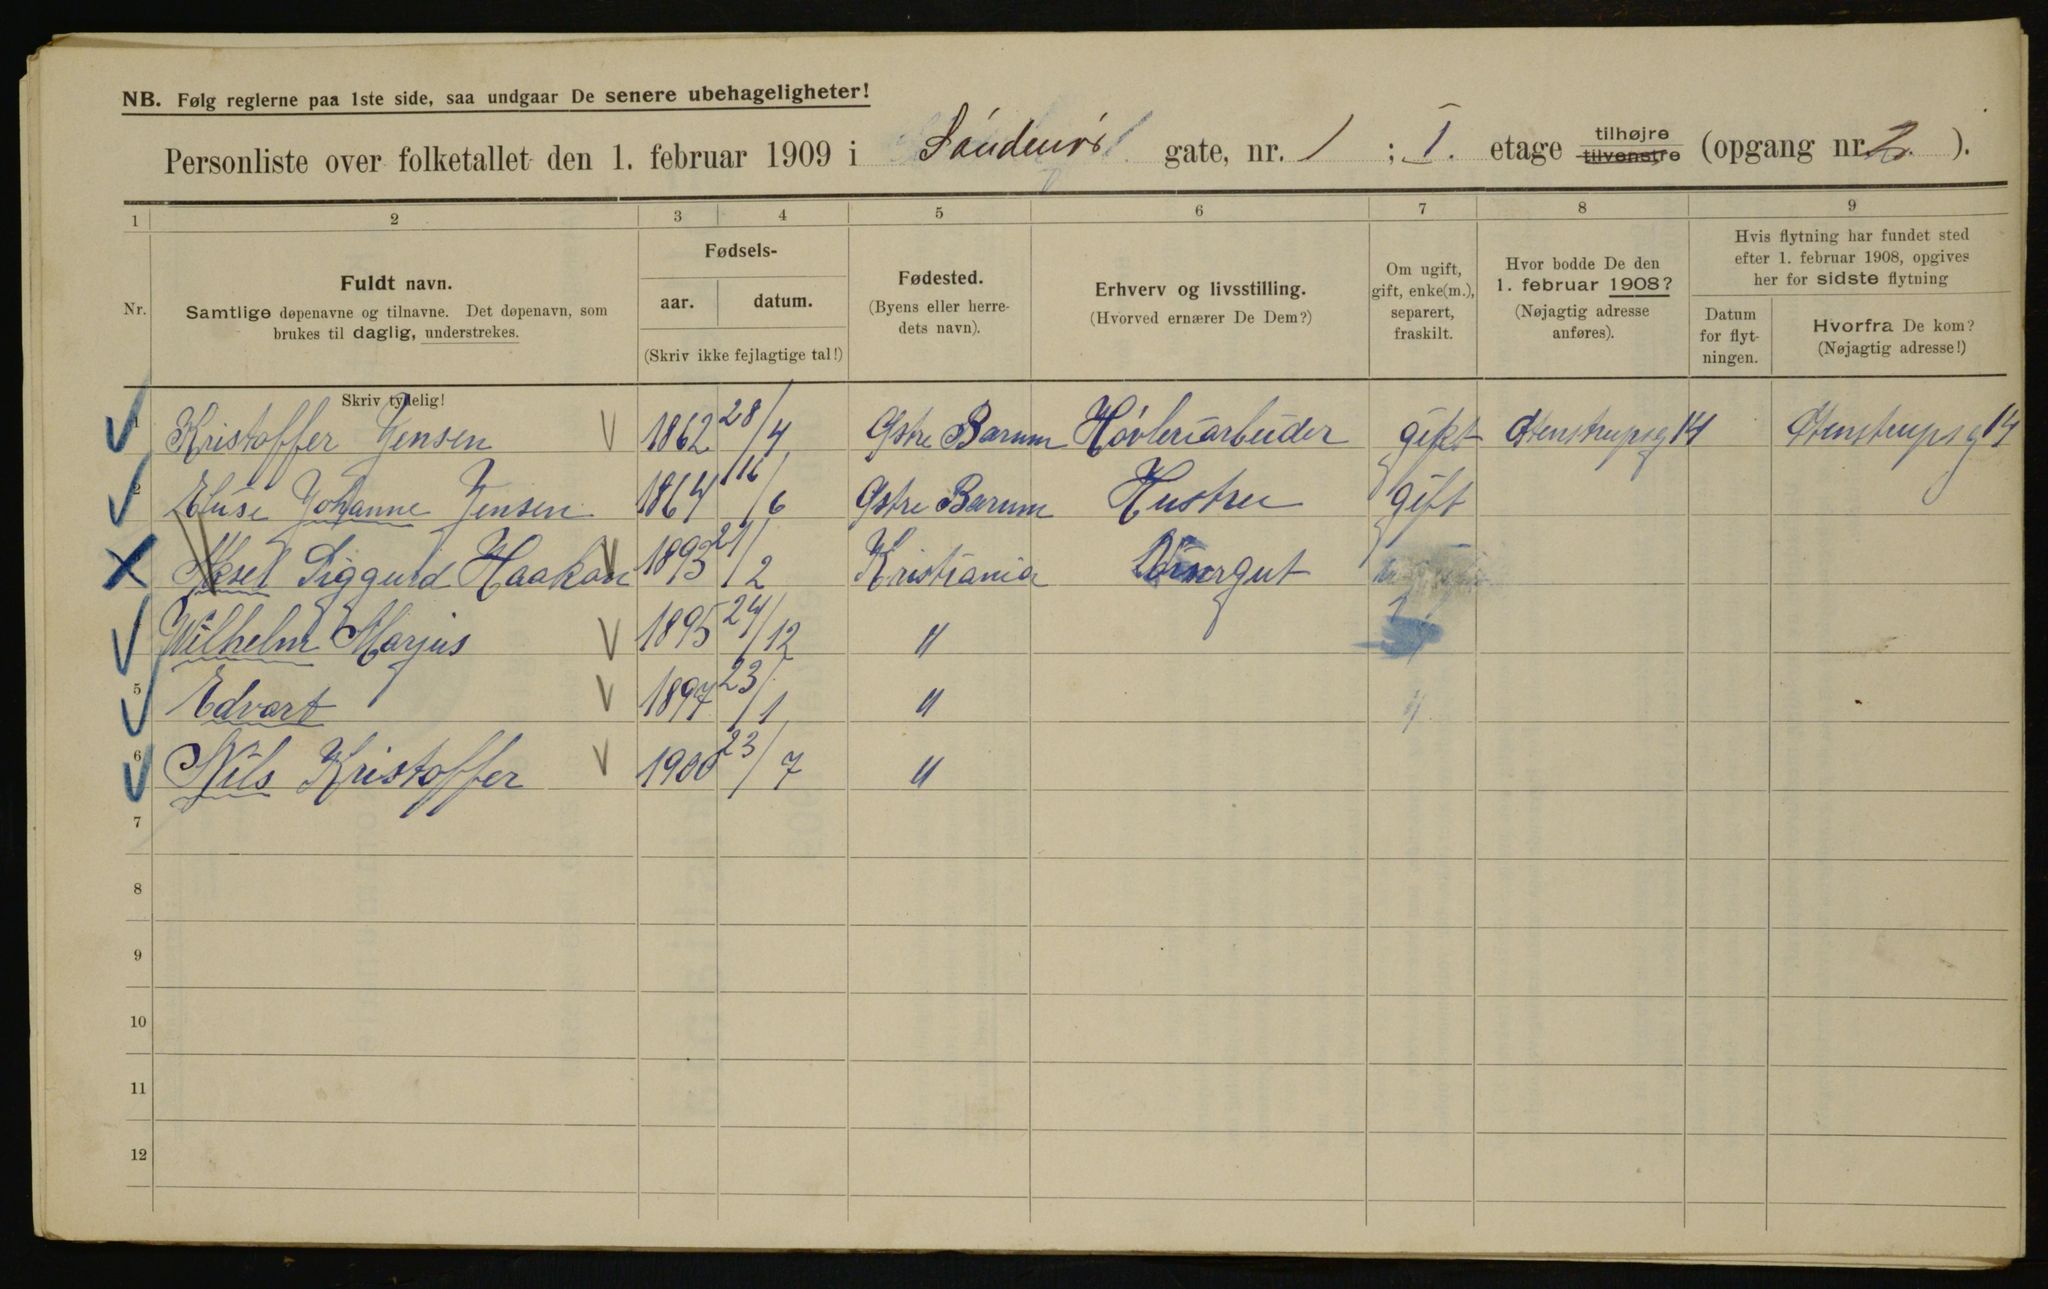 NB. Følg reglerne paa 1ste side, saa undgaar De senere ubehageligheter!
Personliste over folketallet den 1. februar 1909 i gate, nr. 1 ; I. etage tilhøjre tilvenstre (opgang nr. 2. ).
1 2 3 4 5 6 7 8 9
Nr.
Fuldt navn.
Samtlige døpenavne og tilnavne. Det døpenavn, som
brukes til daglig, understrekes.
Skriv tydelig!
Fødsels-
aar. datum.
(Skriv ikke fejlagtige tal!)
Fødested.
(Byens eller herre-
dets navn).
Erhverv og livsstilling.
(Hvorved ernærer De Dem?)
Om ugift,
gift, enke(m.),
separert,
fraskilt.
Hvor bodde De den
1. februar 1908?
(Nøjagtig adresse
anføres).
Hvis flytning har fundet sted
efter 1. februar 1908, opgives
her for sidste flytning
Datum
for flyt-
ningen.
Hvorfra De kom?
(Nøjagtig adresse!)
1 Kristoffer Jensen 1862 28/4 Østre Barum Høvleriarbeider gikt Stenstrupsg 14 Stenstrupsg 14
2 Elise Johanne Jensen 1864 16/6 Østre Barum Hustru gift
Aksel Siggurd Haakon 1893 21/2 Kristiania
Wilhelm Marjus 1895 24/12 "
5 Edvart 1897 23/1 " "
6 Nils Kristoffer 1900 23/7 "
7
8
9
10
11
12